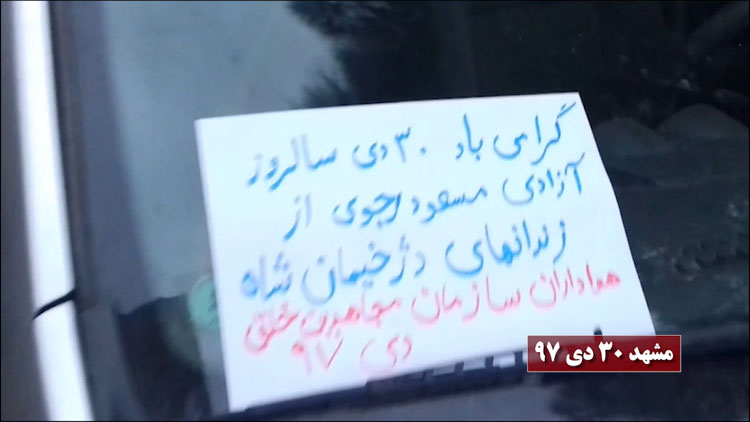 گرامی باد ۳۰ دی سالروز
آزادی مسعود رجوی از
زندانهای دژخیمان شاه
هواداران سازمان مجاهدین خلق
دی ۹۷
مشهد ۳۰ دی ۹۷